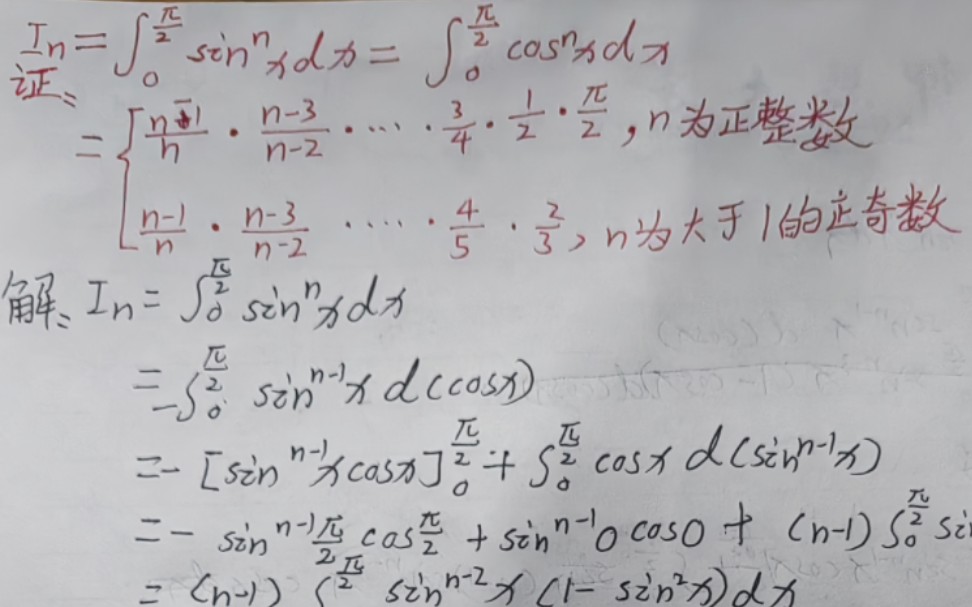 I_n = ∫_0^{π/2} sin^n x dx = ∫_0^{π/2} cos^n x dx
证:
= { (n-1)/n · (n-3)/(n-2) · ... · 3/4 · 1/2 · π/2 , n 为正整数
(n-1)/n · (n-3)/(n-2) · ... · 4/5 · 2/3 , n 为大于1的正奇数
解: I_n = ∫_0^{π/2} sin^n x dx
= -∫_0^{π/2} sin^{n-1} x d(cosx)
= -[sin^{n-1} x cosx]_0^{π/2} + ∫_0^{π/2} cosx d(sin^{n-1} x)
= - sin^{n-1} π/2 cos π/2 + sin^{n-1} 0 cos0 + (n-1) ∫_0^{π/2} sin
= (n-1) ∫^{π/2} sin^{n-2} x (1 - sin^2 x) dx